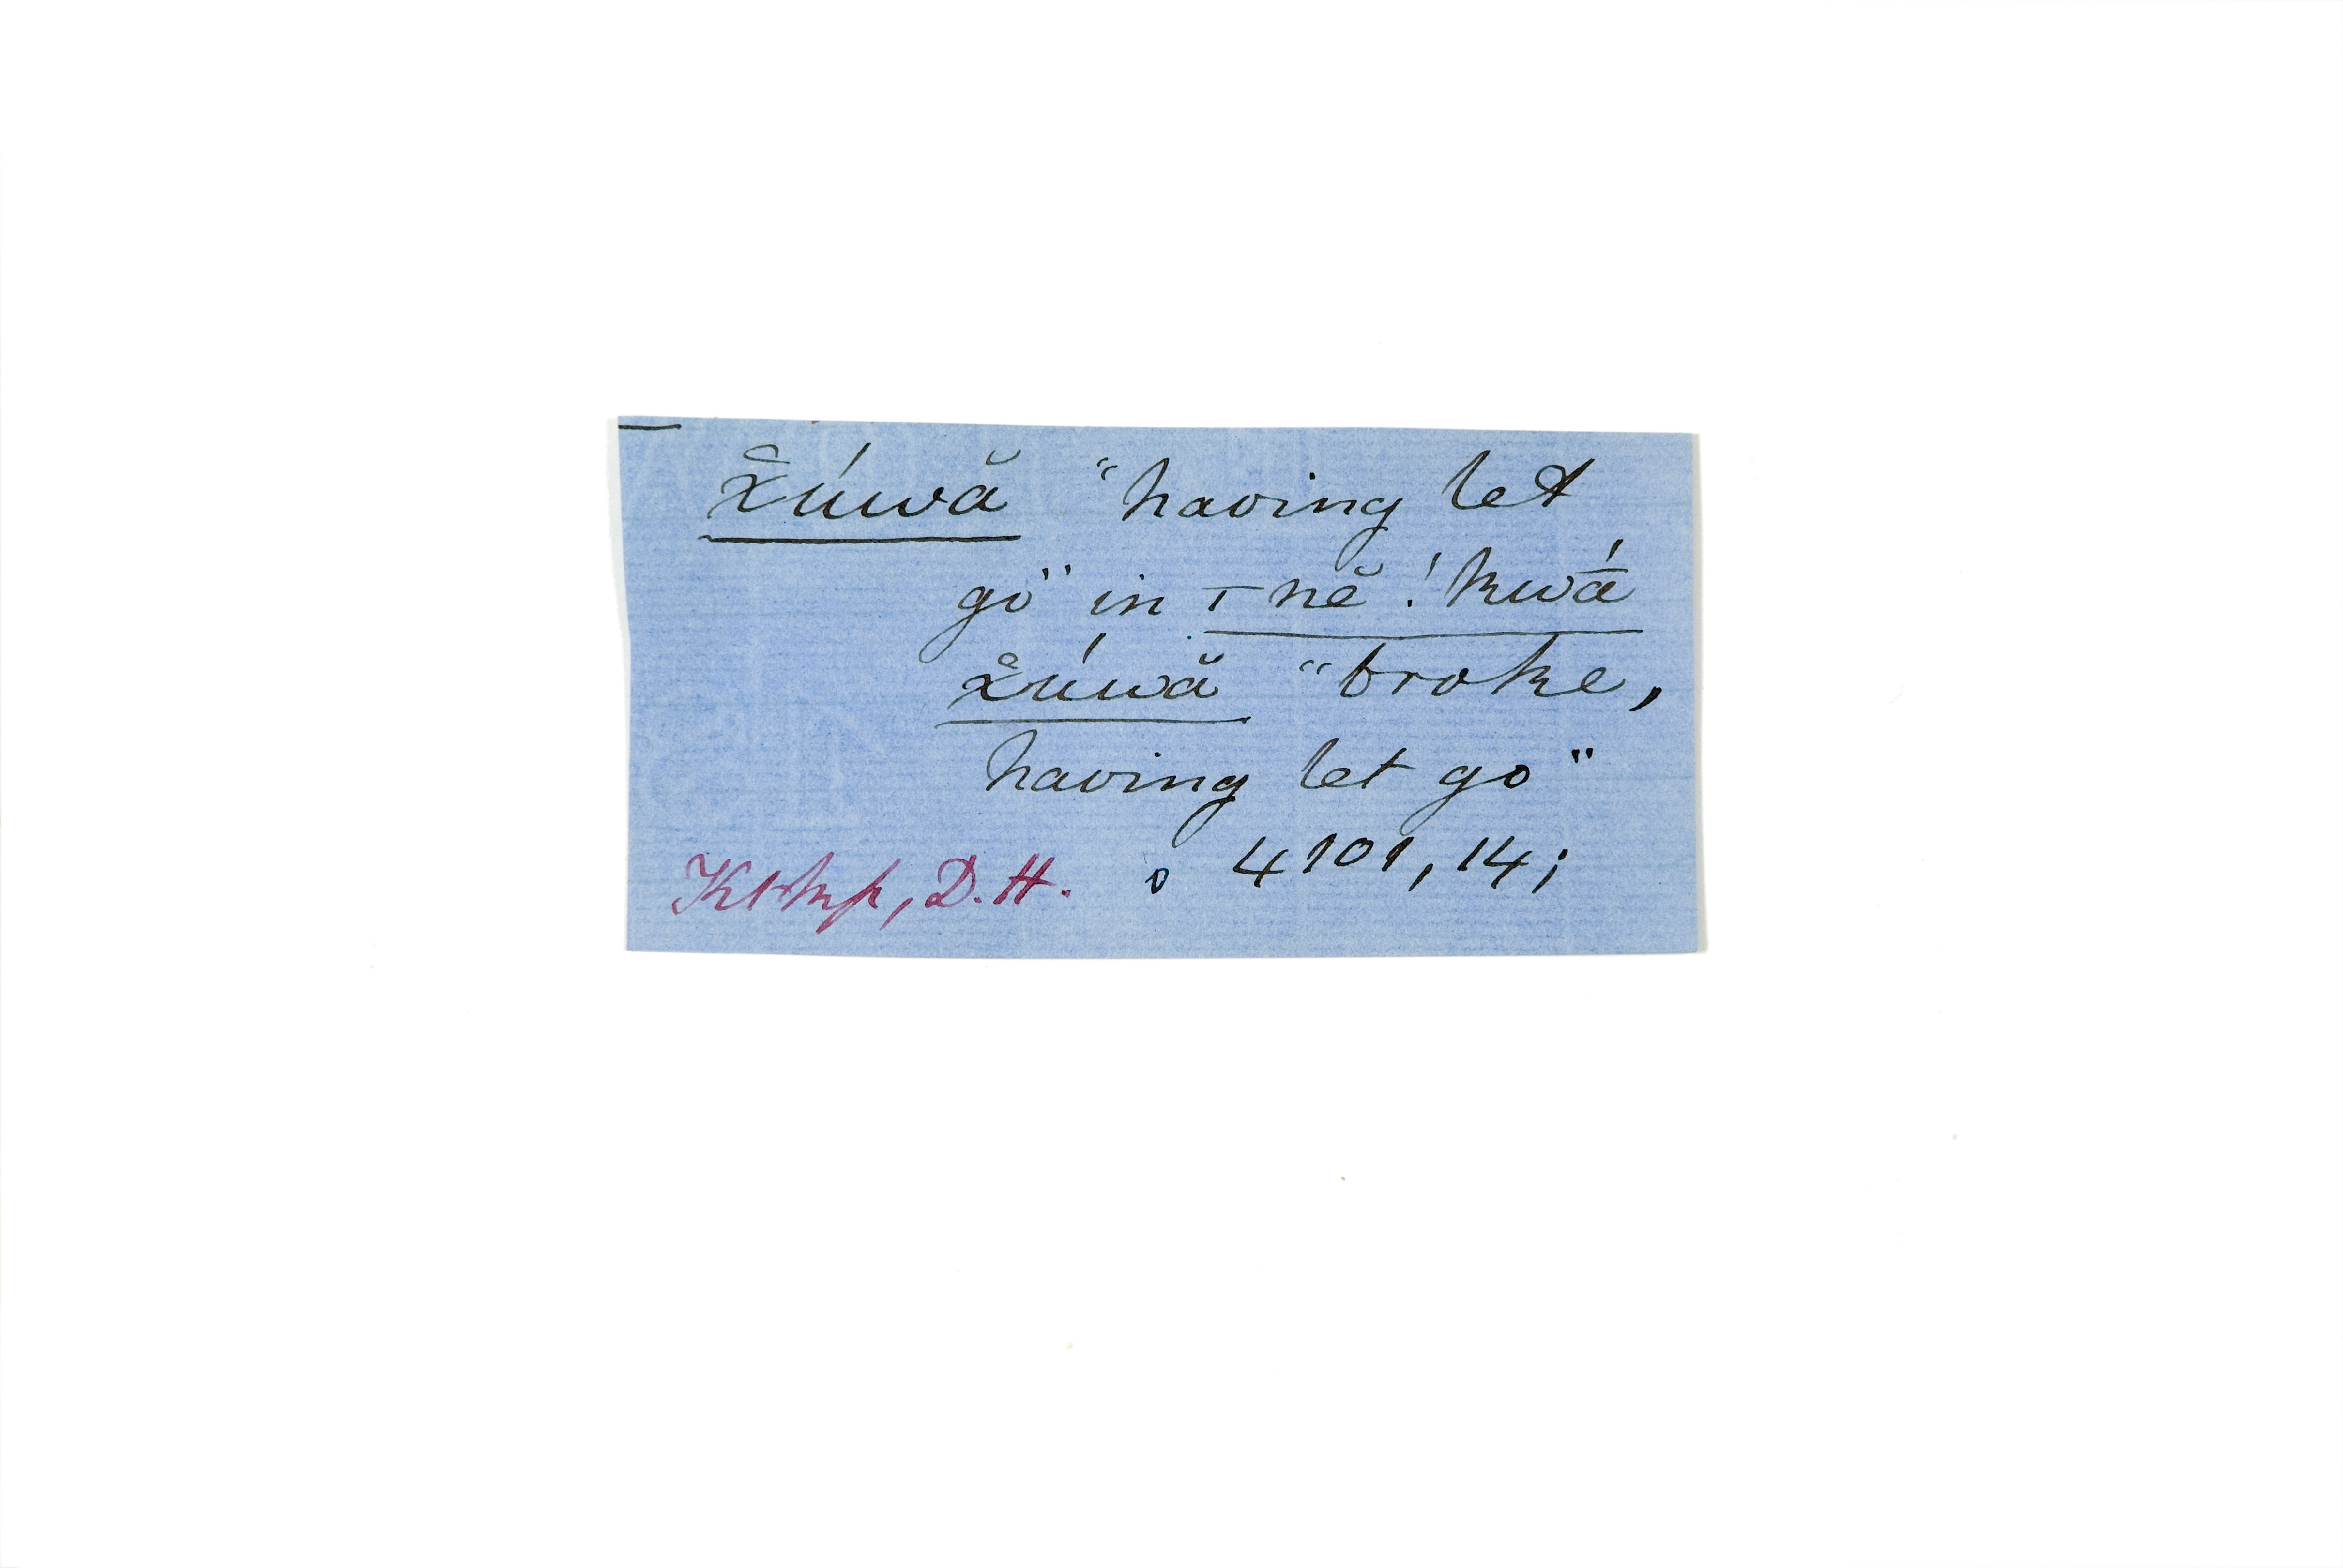 x̰̆úwă "having let
go" in ⊤nĕ ! kwā́
x̰̆úwă "broke,
having let go"
D.H. 4101, 14;